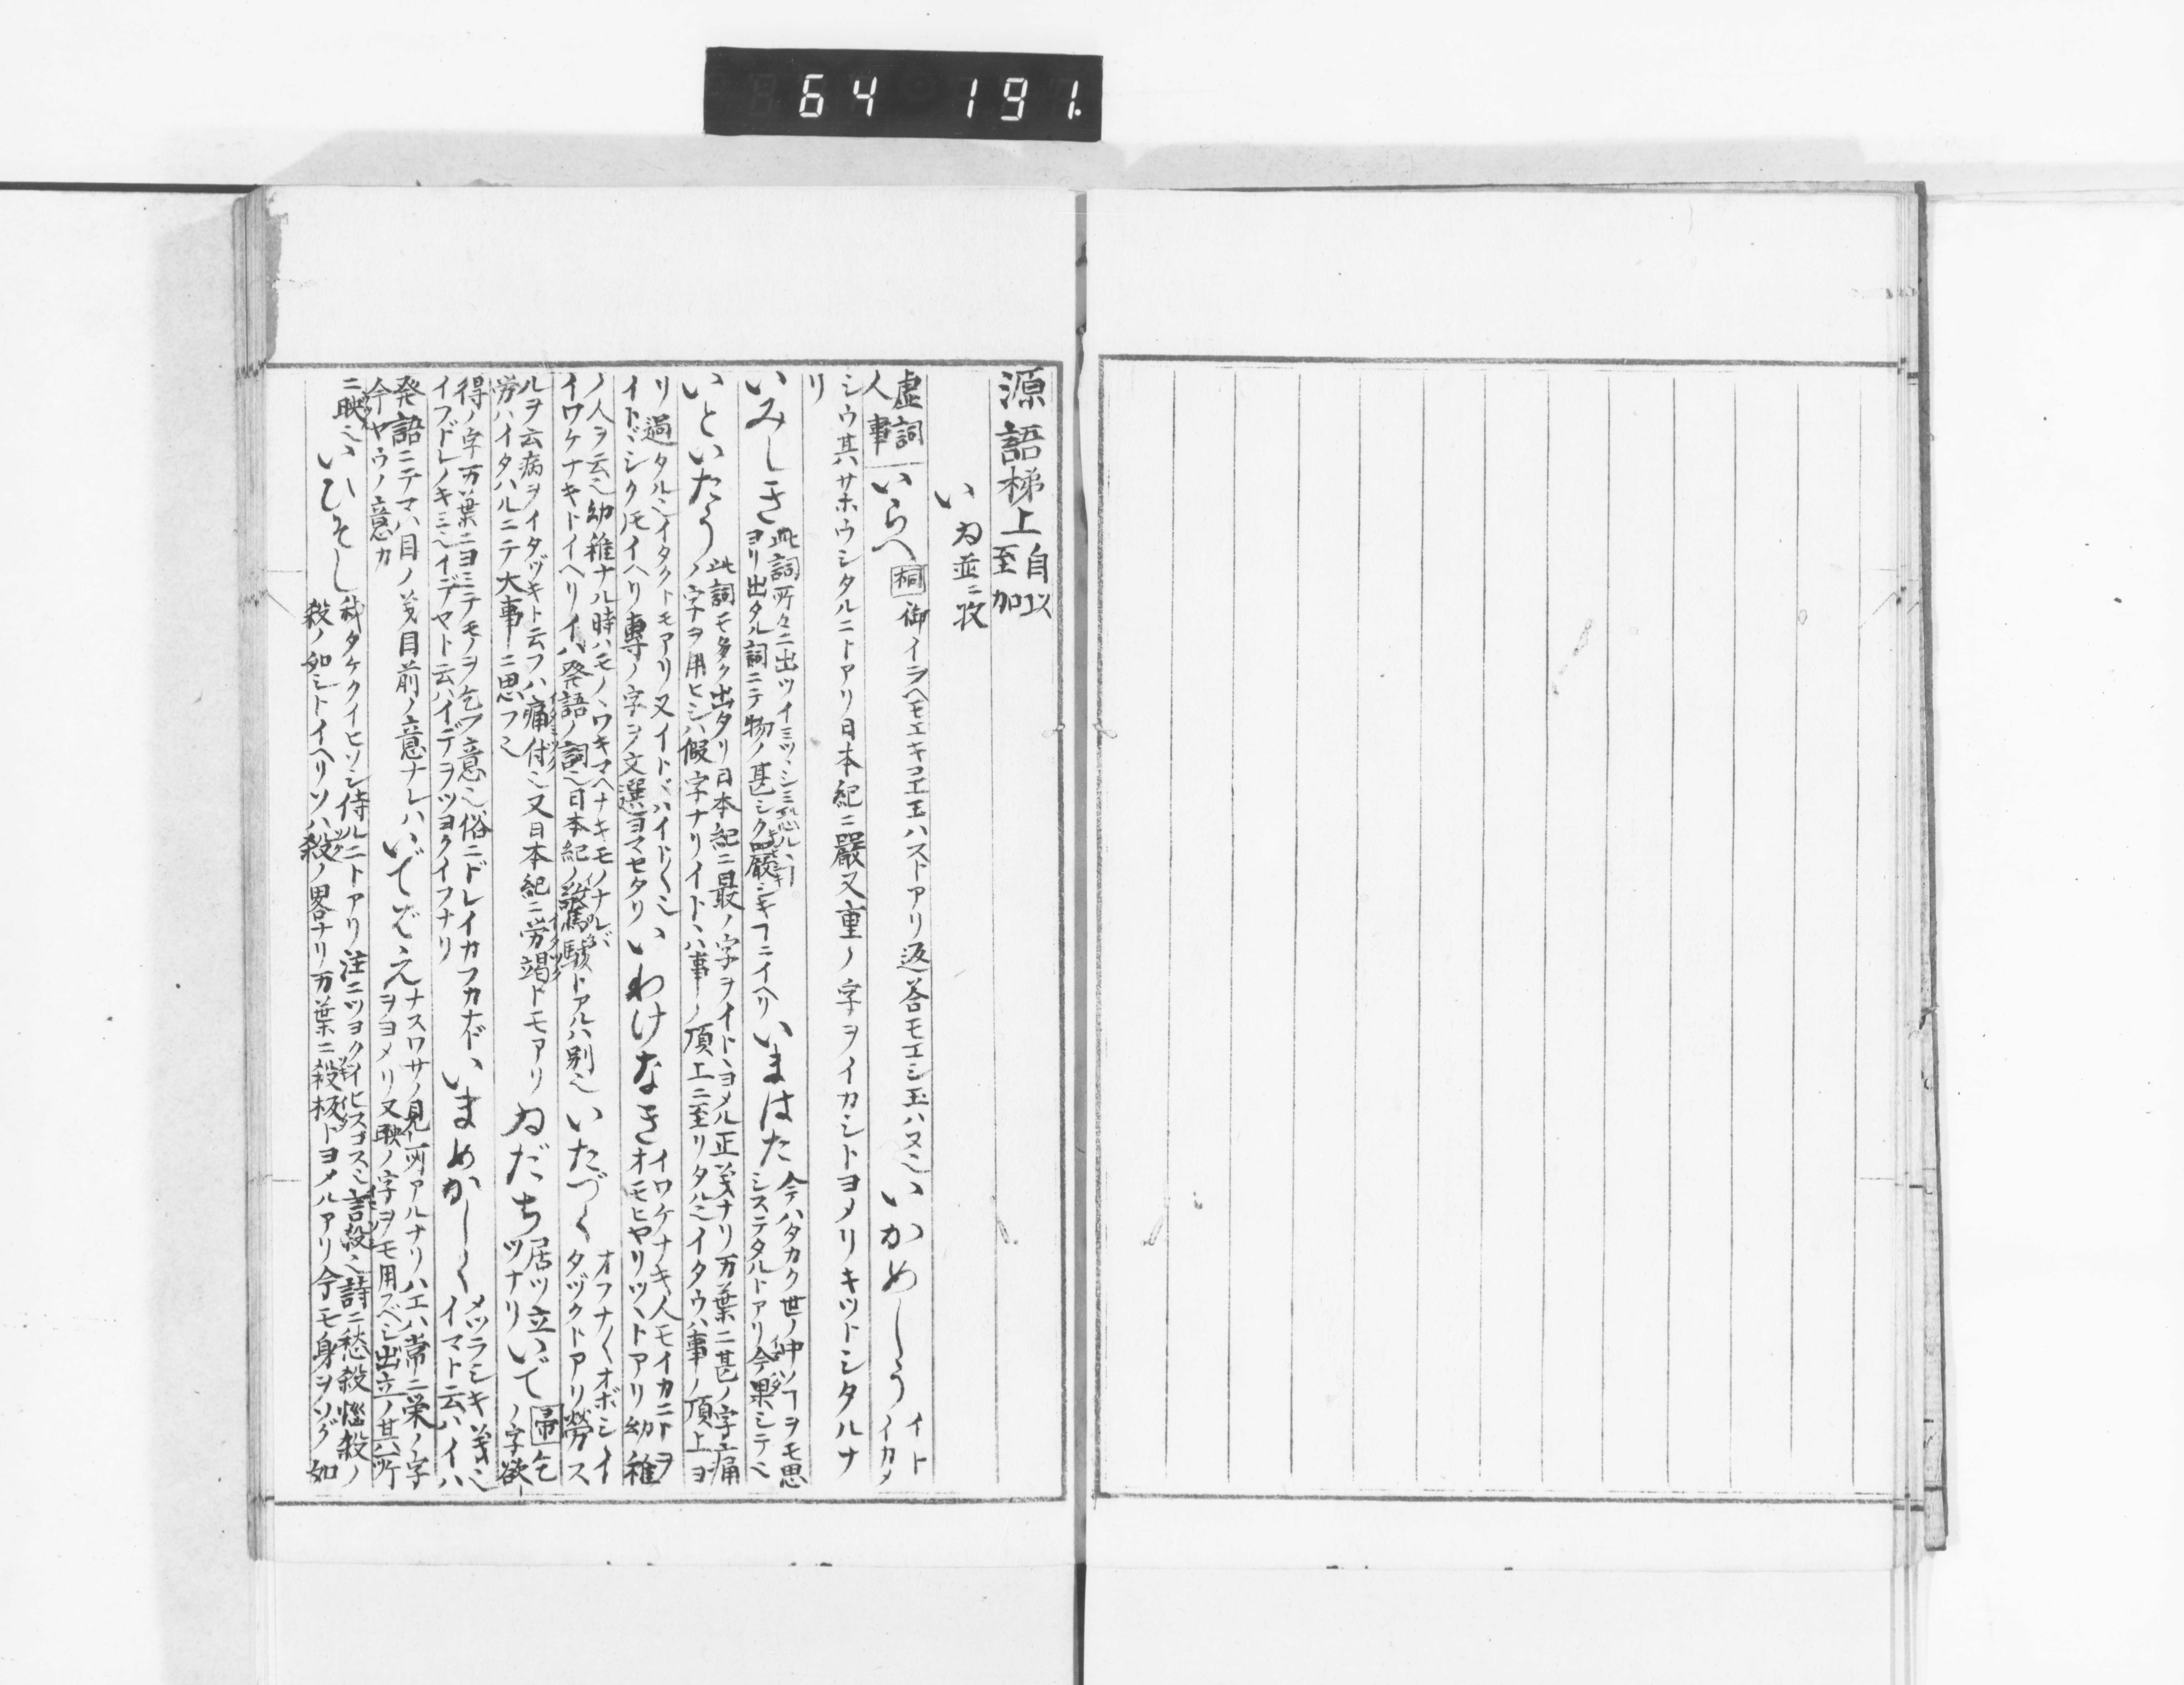 64 191.
源語梯上 自以至加
い ゐ並ニ攷
虚詞人事 いらへ 桐 御イラヘモエキコエ玉ハストアリ返答モエシ玉ハヌ也 いかめしう イトイカメ
シウ其ハサホウシタルニトアリ日本紀ニ嚴又重ノ字ヲイカシトヨメリキツトシタルナ
リ
いみしき 此詞所々ニ出ツ
ヨリ出タル詞ニテ物ノ甚シク嚴シキヿニイヘリ いまはた 今ハタカク世ノ中ノヿヲモ思
システタルトアリ今果シテ也
いといたう 此詞モ多ク出タリ日本紀ニ最ノ字ヲイトヽヨメル正義ナリ万葉ニ甚ノ字痛
ノ字ヲ用ヒシハ假字ナリイトハ事ノ頂上ニ至リタル也イタウハ事ノ頂上ヨ
リ過タル也イタクトモアリ又イトヾハイト〱也
イトヾシク𪜈イヘリ專ノ字ヲ文選ヨマセタリ いわけなき イワケナキ人モイカニトヲ
オモヒヤリツヽトアリ幼稚
ノ人ヲ云也幼稚ナル時ハモノヽワキマヘナキモノナレバ
イワケナキトイヘリイハ発語ノ詞也日本紀ノ驚駭トアルハ別也 いたづく オフナ〱オボシイ
タヅクトアリ勞ス
ルヲ云病ヲイタヅキト云フハ痛付也又日本紀ニ労竭トモアリ
労ハイタハルニテ大事ニ思フ也 ゐだち 居ツ立
ツナリ いで 帚 乞
ノ字欲
得ノ字万葉ニヨミテモノヲ乞フ意也俗ニドレイカフカナド
イフドレノキミ也イデヤト云ハイデヲツヨクイフナリ いまめかし〱 メツラシキ義也
イマト云ハイハ
発語ニテマハ目ノ義目前ノ意ナレハ
今ヤウノ意カ いでばえ ナスワサノ見所アルナリハエハ常ニ栄ノ字
ヲヨメリ又映ノ字ヲモ用フベシ出立ノ其所
ニ映也 いひそし タケクイヒソシ侍ルニトアリ注ニツヨクイヒスゴス也言殺也詩ニ愁殺惱殺ノ
殺ノ如シトイヘリソハ殺ノ畧ナリ万葉ニ殺板トヨメルアリ今モ身ヲソグ如